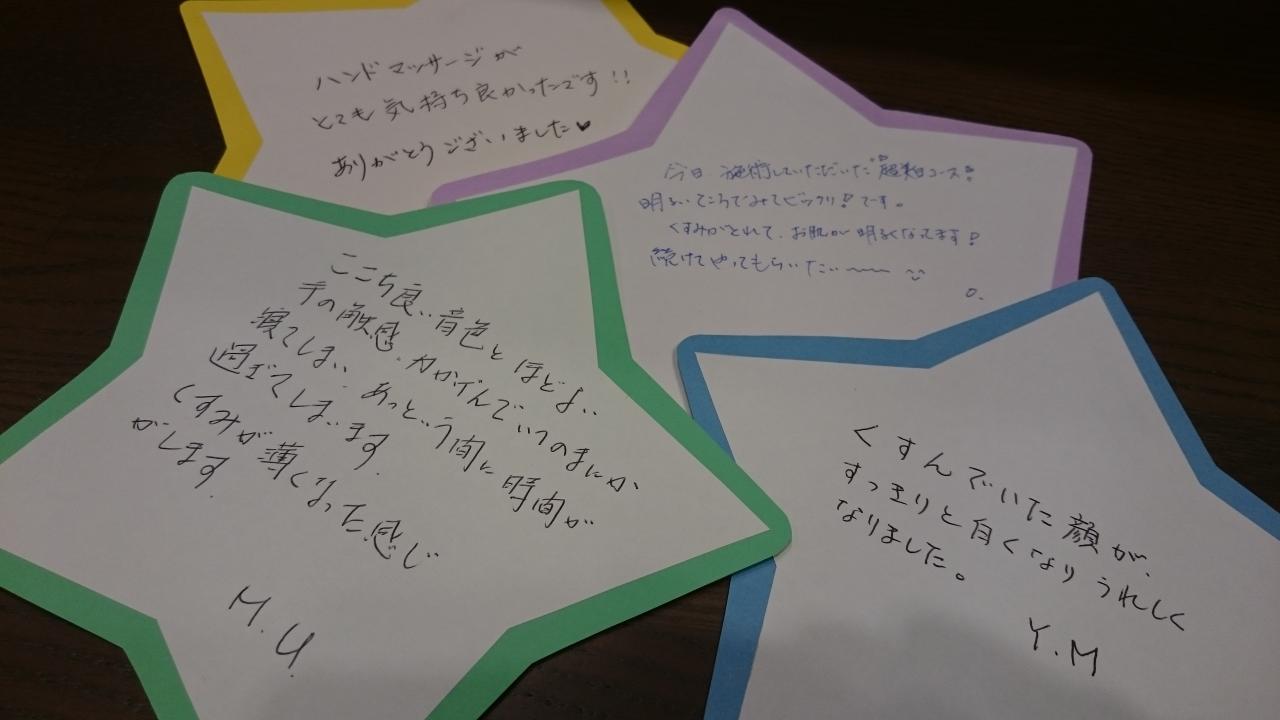 ハンドマッサージが
とても気持ち良かったです!!
ありがとうございました♥
今日 施術していただいた"超美白コース"!
明るいところでみてビックリ!です。
くすみがとれて、お肌が明るくなってます!
続けてやってもらいたい〜〜〜
O.
ここち良い音色とほどよい
手の触感、力かげんでいつのまにか
寝てしまい、あっという間に時間が
過ぎてしまいます。
くすみが薄くなった感じ
がします。
M.U
くすんでいた顔が、
すっきりと白くなりうれしく
なりました。
Y.M